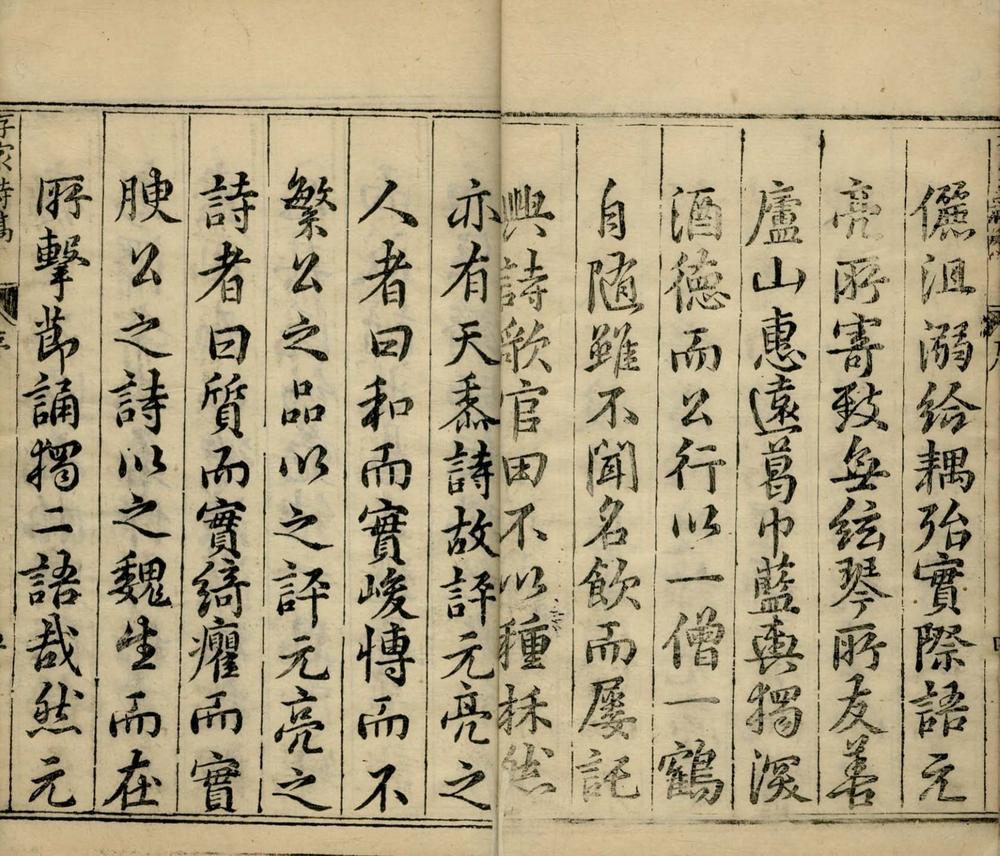 儷沮溺給耦殆實際語元
亮所寄致無絃琴所友善
廬山惠遠葛巾藍輿獨深
酒德而公行以一僧一鶴
自隨雖不聞名飲而屢託
興詩歌官田不以種秫然
亦有天黍詩故評元亮之
人者曰和而實峻慱而不
繁公之品以之評元亮之
詩者曰質而實綺癯而實
腴公之詩以之魏生而在
所擊節誦獨二語哉然元